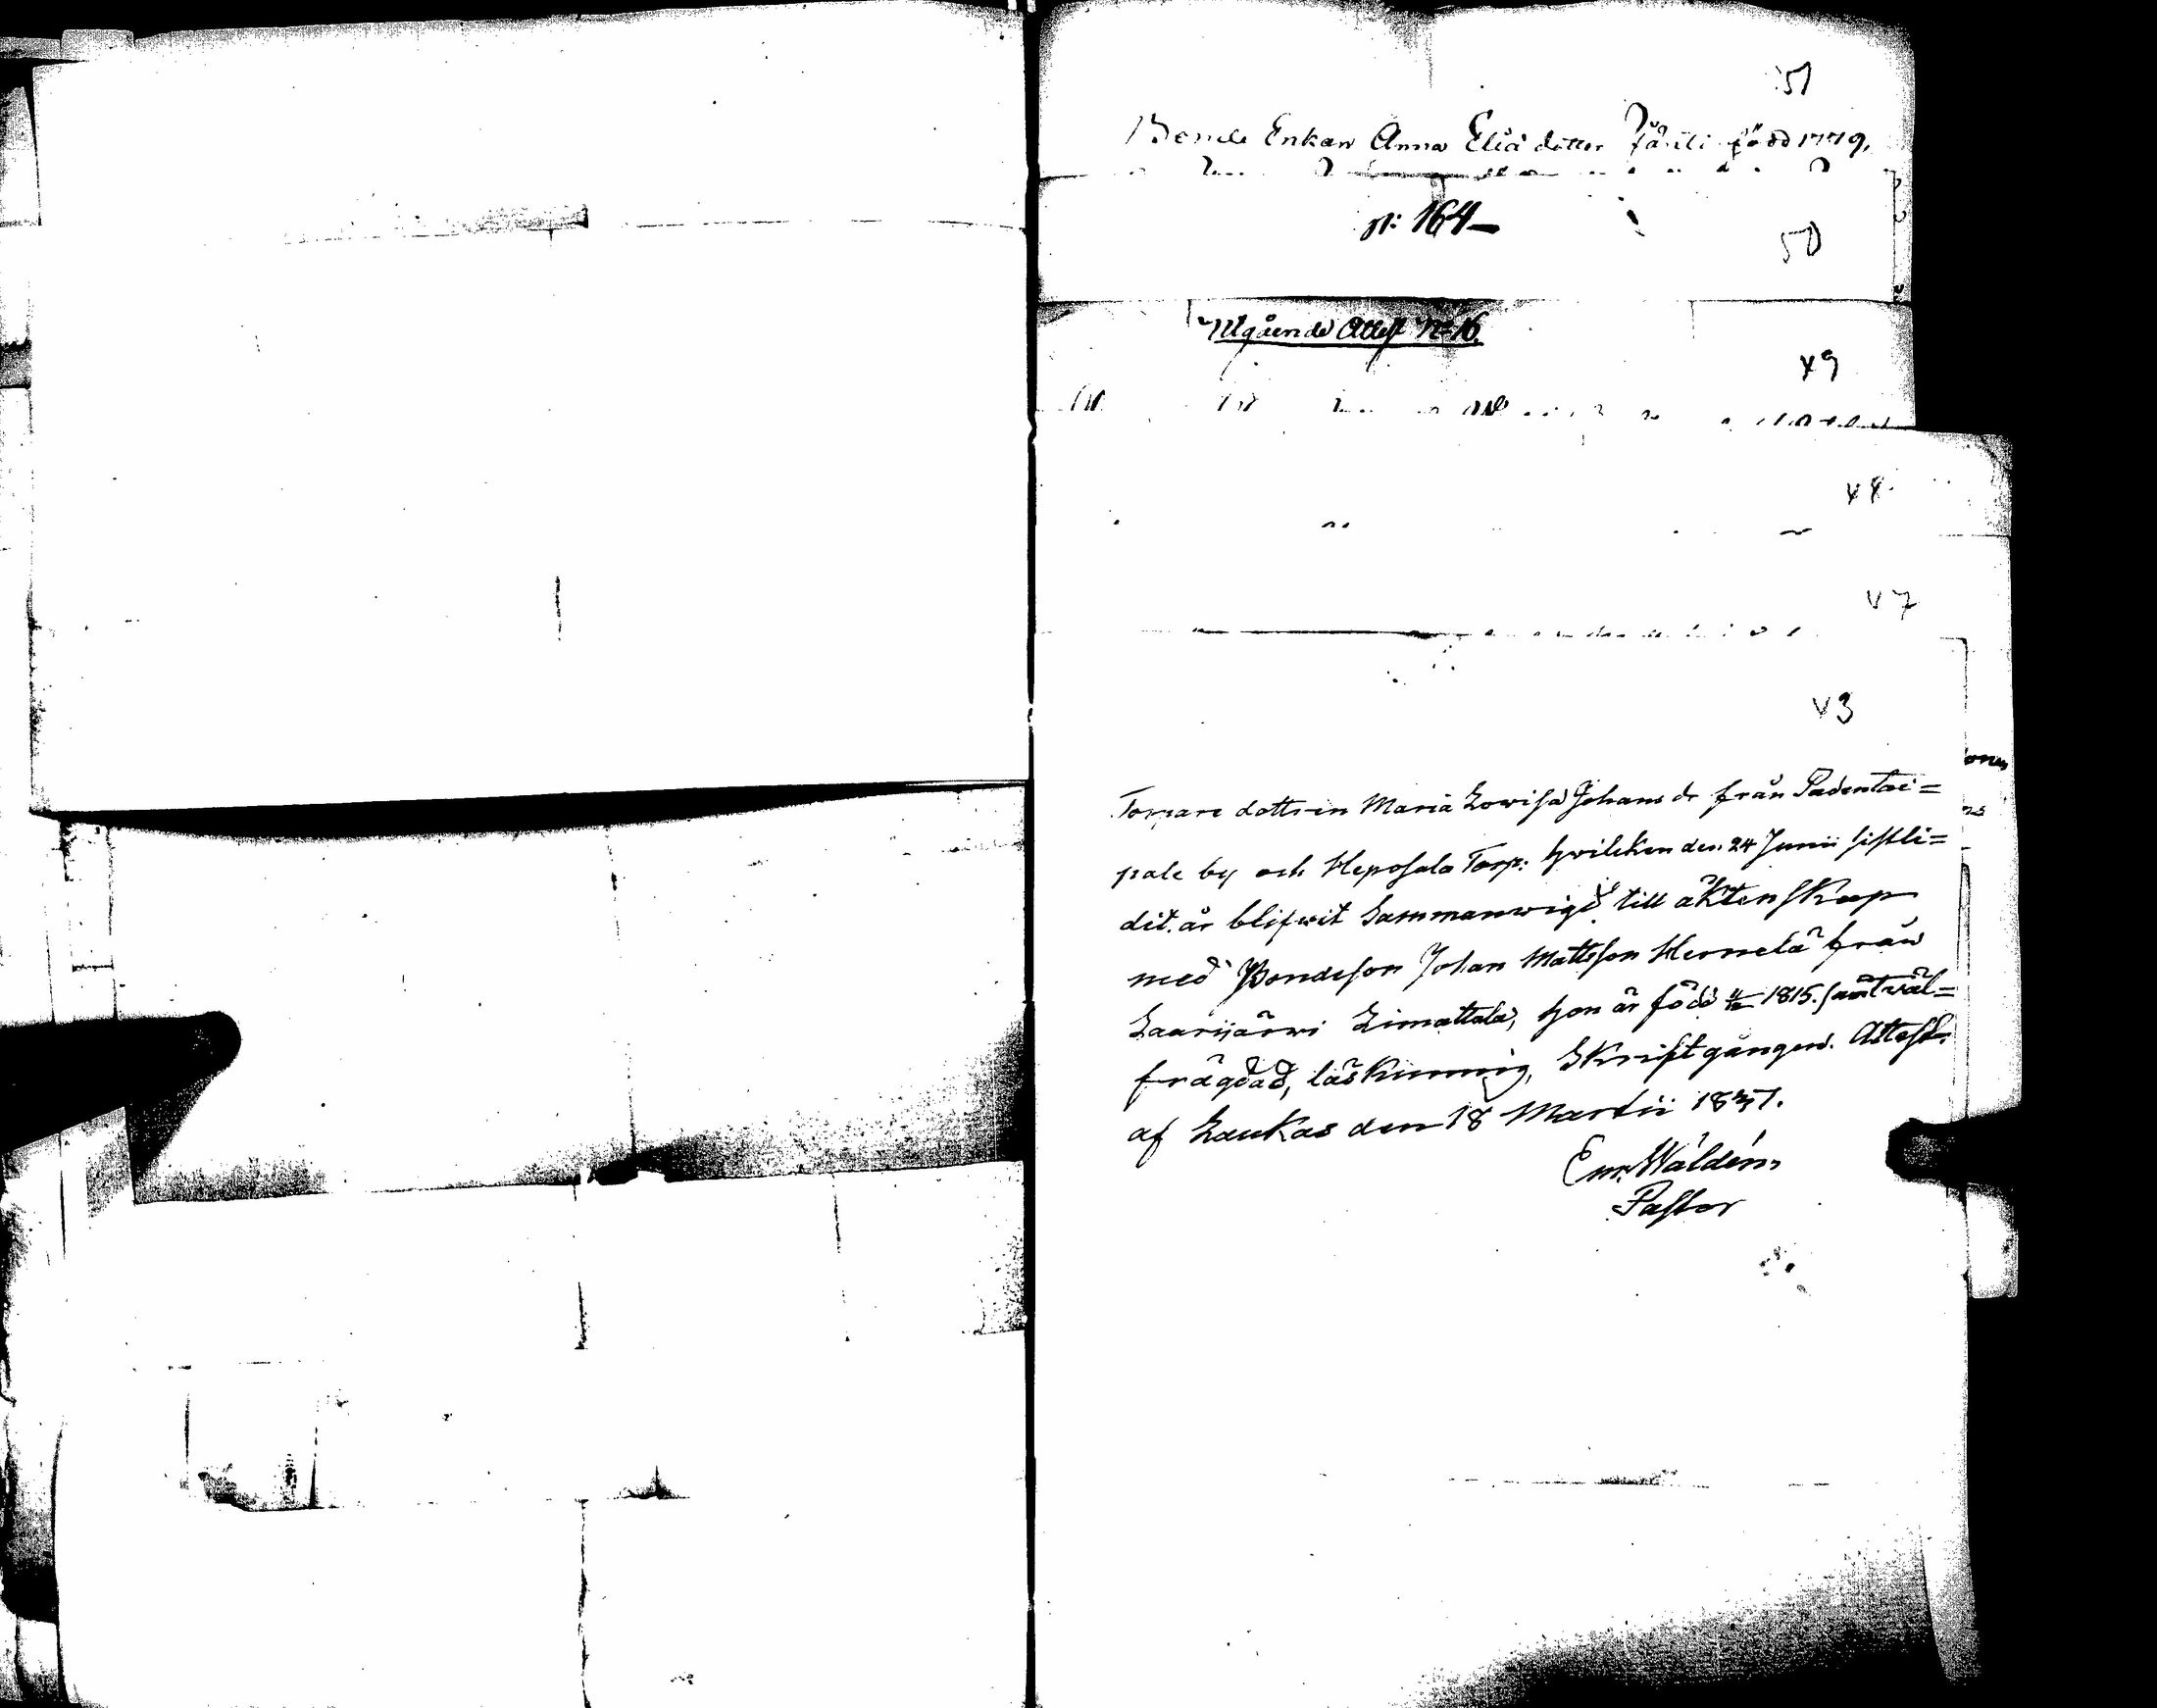 51
Bonde Enkan Anna Eliä dotter född 1779,
p: 164
50
Utgående Attest No 16.
49
48
47
43
Torpare dottren Maria Lowisa Johans dr från Padentai=
pale by och Heposala Torp: hvilcken den 24 Junii sistli=
dit. år blifwit Sammanwigd till äktenskap
med Bondeson Johan Mattsson Hernelä från
Saarijärvi Limattala, hon är född 1815. samt wäl=
frägdad, läskunnig, Skriftgången. Attest.
af Laukas den 18 Martii 1837.
Em. Waldén,
Pastor